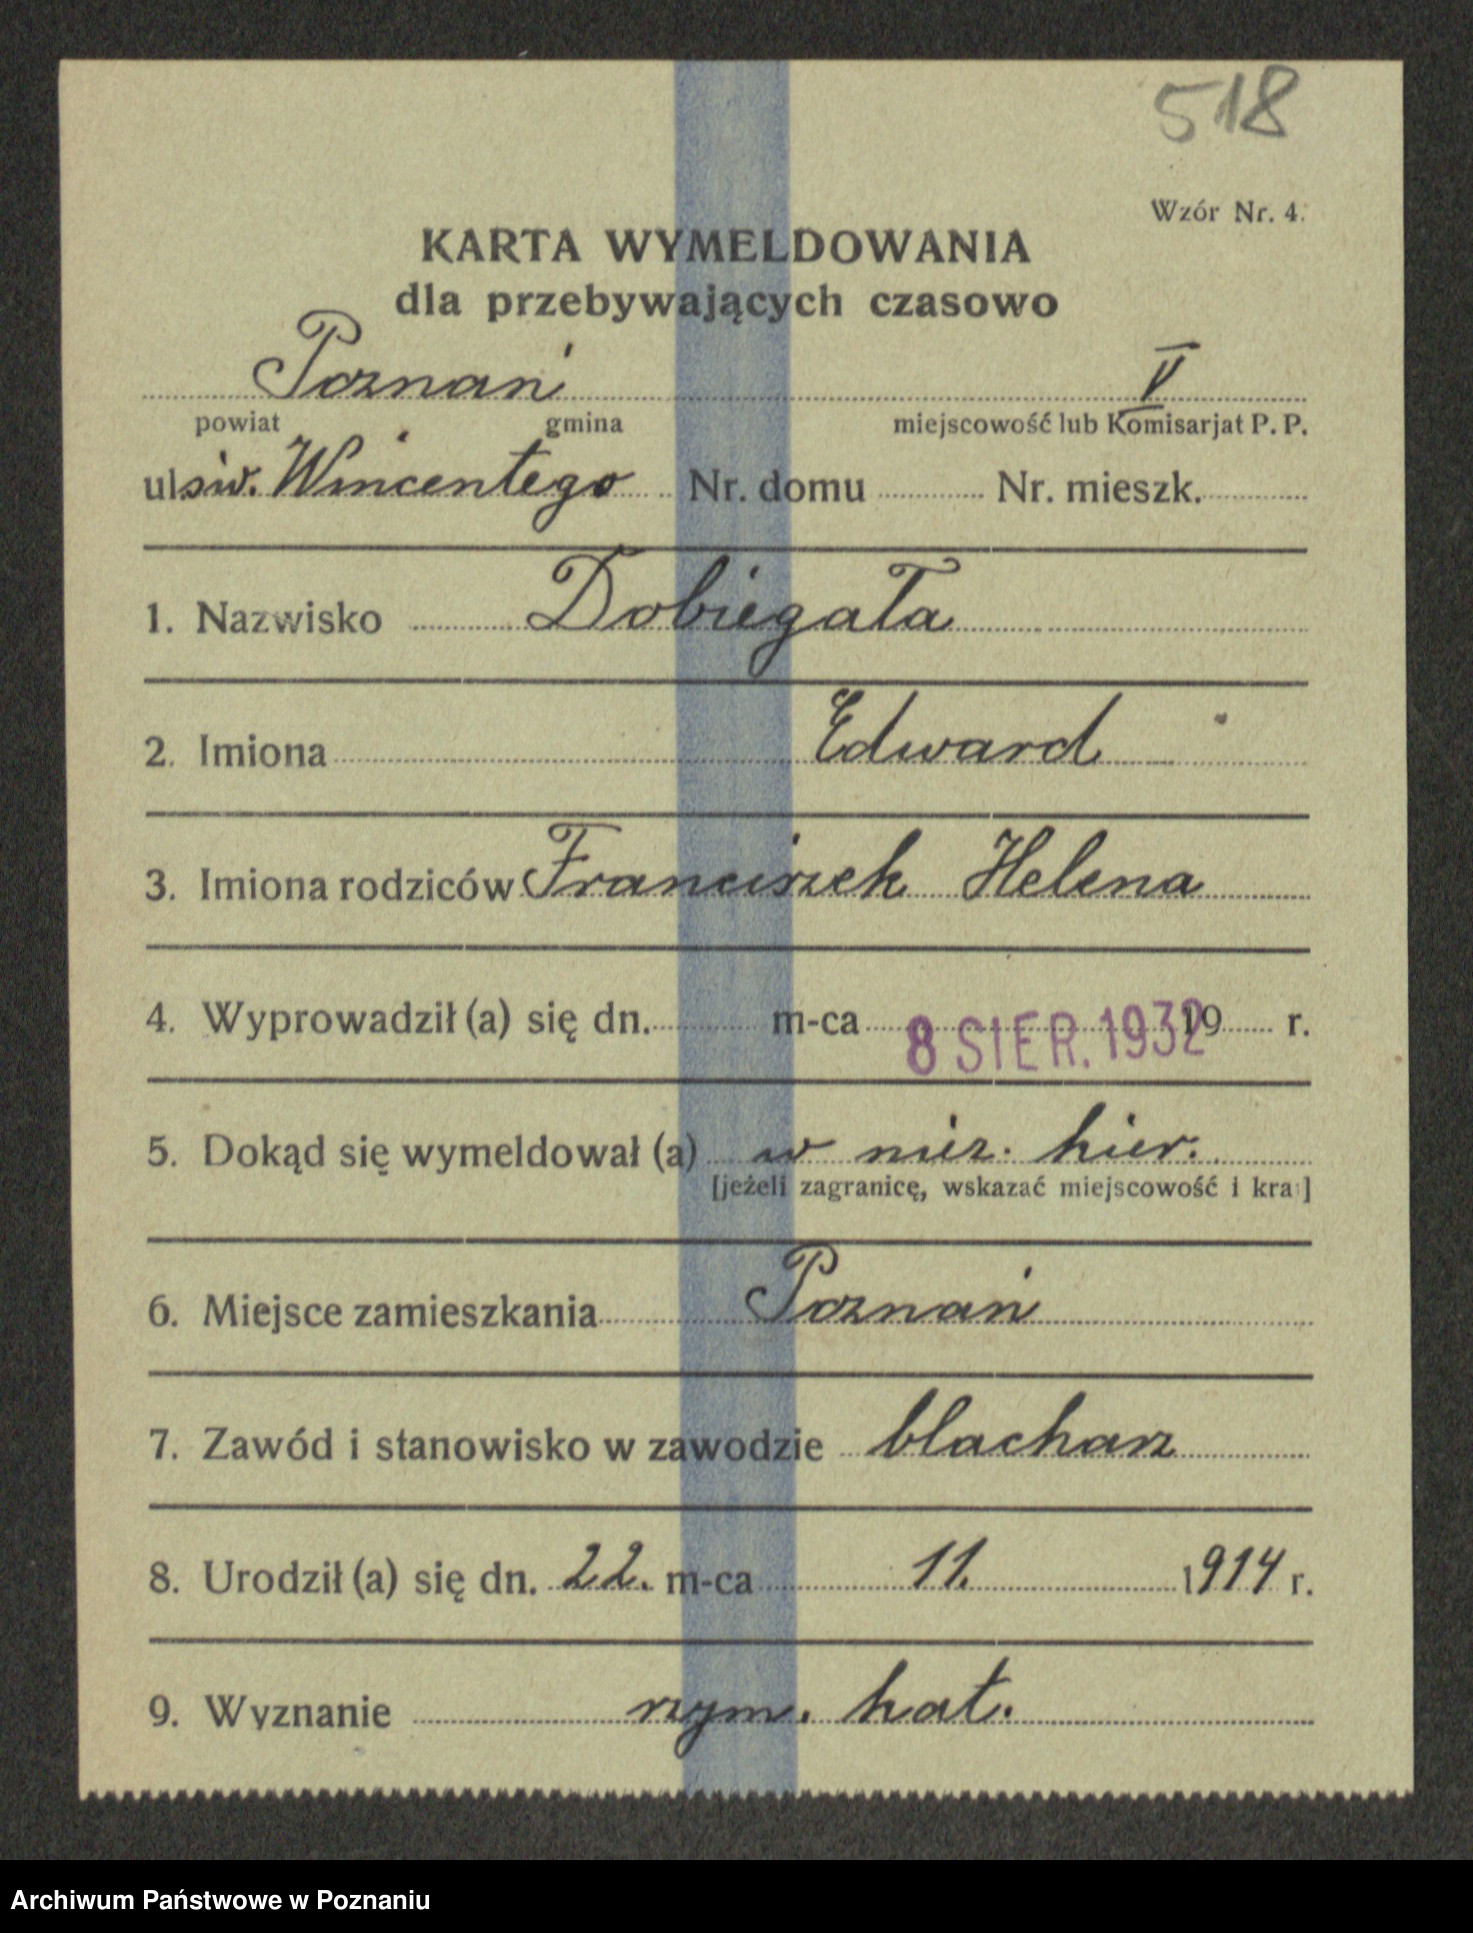 518
Wzór Nr. 4.
KARTA WYMELDOWANIA
dla przebywających czasowo
Poznań V
powiat gmina miejscowość lub Komisarjat P. P.
ul. św. Wincentego Nr. domu Nr. mieszk.
1. Nazwisko Dobiegała
2. Imiona Edward
3. Imiona rodziców Franciszek Helena
4. Wyprowadził (a) się dn. m-ca 8 SIER. 1932 19 r.
5. Dokąd się wymeldował (a) w niez. kier.
[jeżeli zagranicę, wskazać miejscowość i kraj]
6. Miejsce zamieszkania Poznań
7. Zawód i stanowisko w zawodzie blacharz
8. Urodził (a) się dn. 22. m-ca 11. 1914 r.
9. Wyznanie rzym. kat.
Archiwum Państwowe w Poznaniu